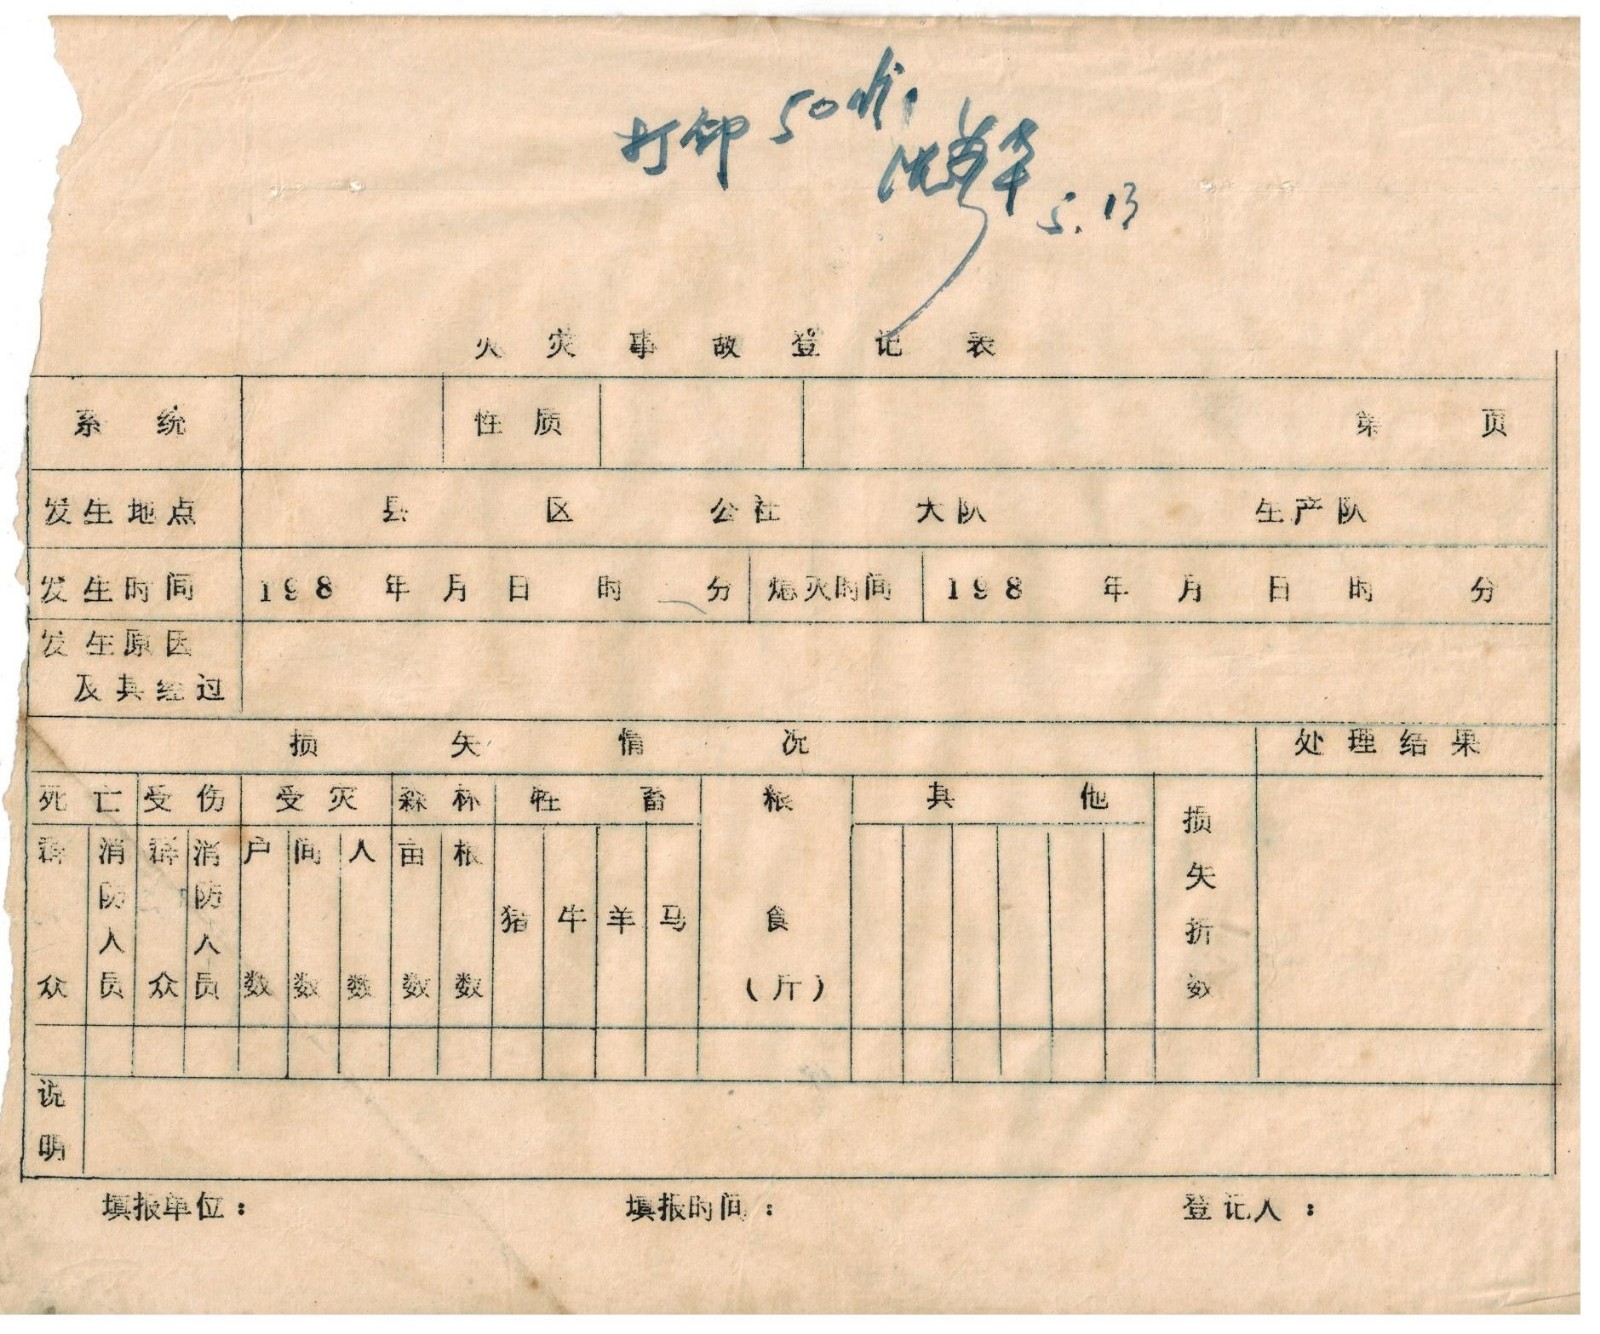 打印50份
5.13
火灾事故登记表
系统 性质 第 页
发生地点 县 区 公社 大队 生产队
发生时间 198 年 月 日 时 分 熄灭时间 198 年 月 日 时 分
发生原因
及其经过
损失情况 处理结果
死亡 受伤 受灾 森林 牲畜 粮食(斤) 其他 损失折数
群众 消防人员 群众 消防人员 户数 间数 人数 亩数 根数 猪 牛 羊 马
说明
填报单位： 填报时间： 登记人：